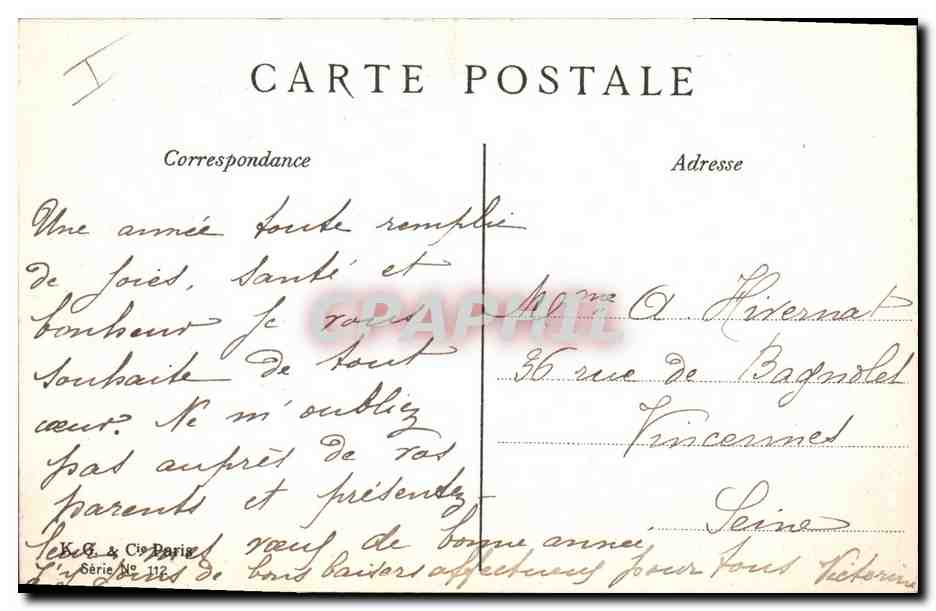 CARTE POSTALE
Correspondance
Une année toute remplie
de joies, santé et
bonheur je vous
souhaite de tout
cœur. Ne m'oubliez
pas auprès de vos
parents et présentez-
leur mes vœux de bonne année
J'y joins de bons baisers affectueux pour tous Victorine
K.G. & Cie Paris
Série No 112
Adresse
Mme A. Hivernat
36 rue de Bagnolet
Vincennes
Seine
CPAPHIL